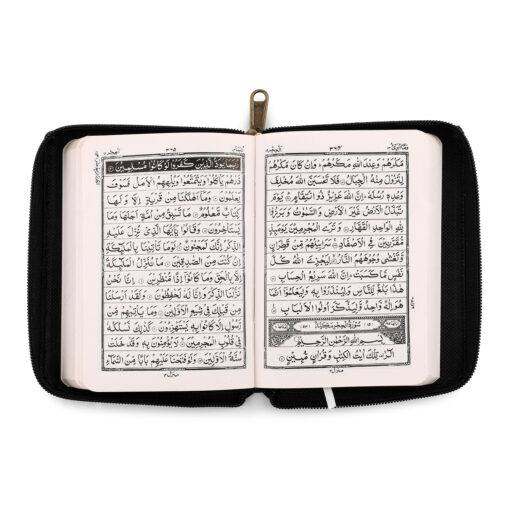 ٣٦٤
مَكْرَهُمْ وَعِنْدَ اللّٰهِ مَكْرُهُمْ وَاِنْ كَانَ مَكْرُهُمْ
لِتَزُوْلَ مِنْهُ الْجِبَالُ فَلَا تَحْسَبَنَّ اللّٰهَ مُخْلِفَ
وَعْدِهٖ رُسُلَهٗ اِنَّ اللّٰهَ عَزِيْزٌ ذُو انْتِقَامٍ يَوْمَ
تُبَدَّلُ الْاَرْضُ غَيْرَ الْاَرْضِ وَالسَّمٰوٰتُ وَبَرَزُوْا
لِلّٰهِ الْوَاحِدِ الْقَهَّارِ وَتَرَى الْمُجْرِمِيْنَ يَوْمَئِذٍ
مُّقَرَّنِيْنَ فِي الْاَصْفَادِ سَرَابِيْلُهُمْ مِّنْ قَطِرَانٍ
وَّتَغْشٰى وُجُوْهَهُمُ النَّارُ لِيَجْزِيَ اللّٰهُ كُلَّ
نَفْسٍ مَّا كَسَبَتْ اِنَّ اللّٰهَ سَرِيْعُ الْحِسَابِ
هٰذَا بَلٰغٌ لِّلنَّاسِ وَلِيُنْذَرُوْا بِهٖ وَلِيَعْلَمُوْا اَنَّمَا
هُوَ اِلٰهٌ وَّاحِدٌ وَّلِيَذَّكَّرَ اُولُوا الْاَلْبَابِ
سُوْرَةُ الْحِجْرِ مَكِّيَّةٌ
بِسْمِ اللّٰهِ الرَّحْمٰنِ الرَّحِيْمِ
الٓرٰ تِلْكَ اٰيٰتُ الْكِتٰبِ وَقُرْاٰنٍ مُّبِيْنٍ
٣٦٥
رُبَمَا يَوَدُّ الَّذِيْنَ كَفَرُوْا لَوْ كَانُوْا مُسْلِمِيْنَ
ذَرْهُمْ يَاْكُلُوْا وَيَتَمَتَّعُوْا وَيُلْهِهِمُ الْاَمَلُ فَسَوْفَ
يَعْلَمُوْنَ وَمَا اَهْلَكْنَا مِنْ قَرْيَةٍ اِلَّا وَلَهَا
كِتَابٌ مَّعْلُوْمٌ مَا تَسْبِقُ مِنْ اُمَّةٍ اَجَلَهَا وَمَا
يَسْتَاْخِرُوْنَ وَقَالُوْا يٰاَيُّهَا الَّذِيْ نُزِّلَ عَلَيْهِ
الذِّكْرُ اِنَّكَ لَمَجْنُوْنٌ لَوْ مَا تَاْتِيْنَا بِالْمَلٰٓئِكَةِ
اِنْ كُنْتَ مِنَ الصّٰدِقِيْنَ مَا نُنَزِّلُ الْمَلٰٓئِكَةَ
اِلَّا بِالْحَقِّ وَمَا كَانُوْا اِذًا مُّنْظَرِيْنَ اِنَّا نَحْنُ
نَزَّلْنَا الذِّكْرَ وَاِنَّا لَهٗ لَحٰفِظُوْنَ وَلَقَدْ اَرْسَلْنَا
مِنْ قَبْلِكَ فِيْ شِيَعِ الْاَوَّلِيْنَ وَمَا يَاْتِيْهِمْ مِّنْ
رَّسُوْلٍ اِلَّا كَانُوْا بِهٖ يَسْتَهْزِءُوْنَ كَذٰلِكَ نَسْلُكُهٗ
فِيْ قُلُوْبِ الْمُجْرِمِيْنَ لَا يُؤْمِنُوْنَ بِهٖ وَقَدْ خَلَتْ
سُنَّةُ الْاَوَّلِيْنَ وَلَوْ فَتَحْنَا عَلَيْهِمْ بَابًا مِّنَ السَّمَآءِ